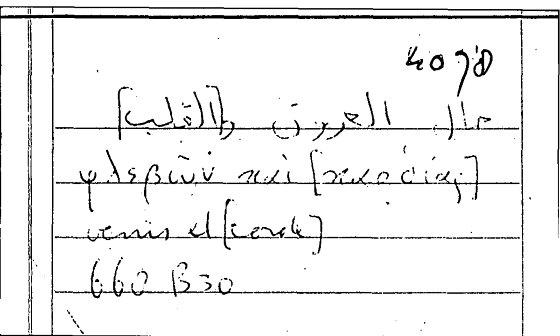 حال العروق و[القلب]
φλεβῶν καὶ [καρδίας]
venis et [corde]
660 B30